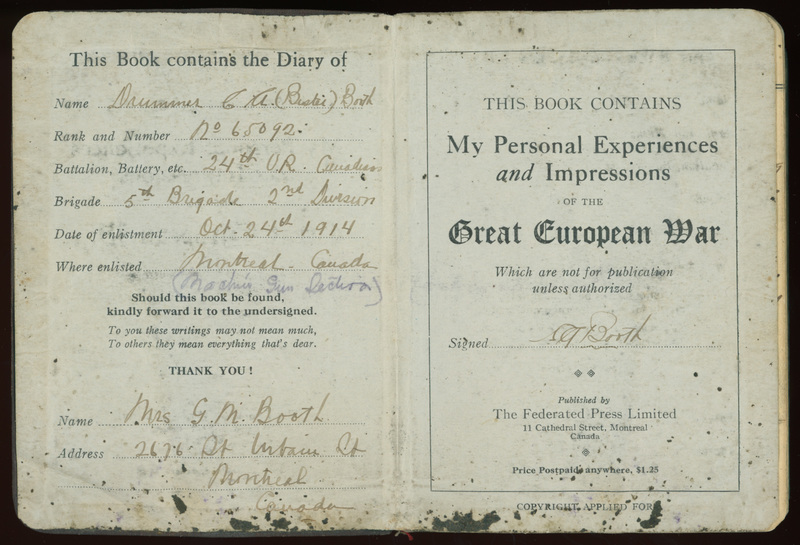 This Book contains the Diary of
Name Drummer C A (Bertie) Booth
Rank and Number No 65092.
Battalion, Battery, etc. 24th V.R. Canadians
Brigade 5th Brigade 2nd Division
Date of enlistment Oct. 24th 1914
Where enlisted Montreal - Canada
(Machine Gun Section)
Should this book be found,
kindly forward it to the undersigned.
To you these writings may not mean much,
To others they mean everything that's dear.
THANK YOU!
Name Mrs G. M. Booth
Address 2676 St Urbain St
Montreal
Canada
THIS BOOK CONTAINS
My Personal Experiences
and Impressions
OF THE
Great European War
Which are not for publication
unless authorized
Signed Booth
Published by
The Federated Press Limited
11 Cathedral Street, Montreal
Canada
Price Postpaid anywhere, $1.25
COPYRIGHT APPLIED FOR